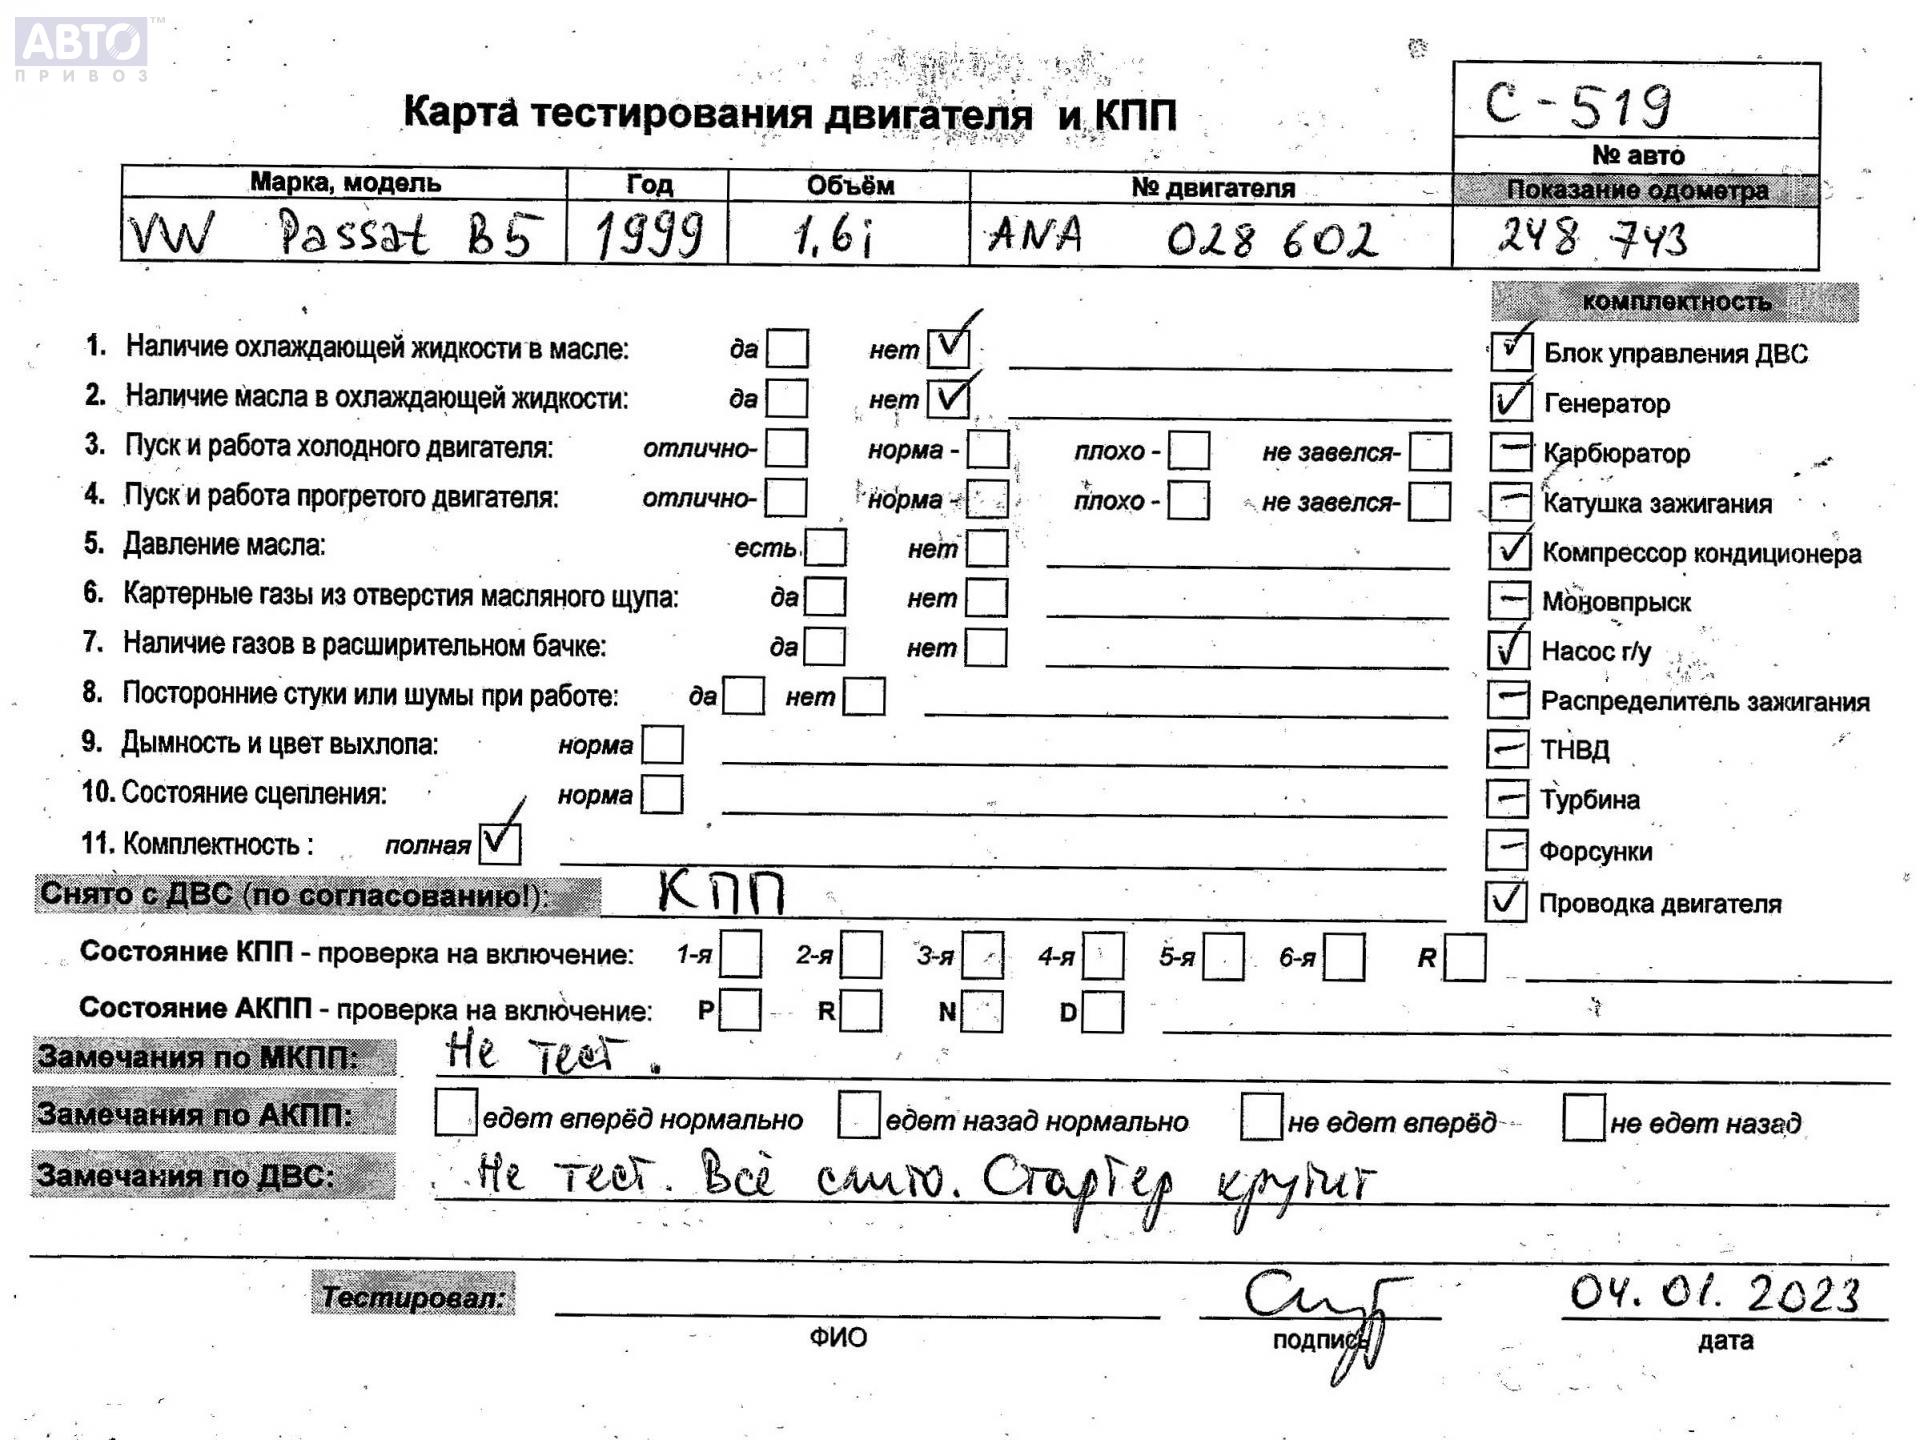 АВТО ™
ПРИВОЗ
Карта тестирования двигателя и КПП
С-519
№ авто
Марка, модель Год Объём № двигателя Показание одометра
VW Passat B5 1999 1,6i ANA 028 602 248 743
комплектность
1. Наличие охлаждающей жидкости в масле: да нет ✓ ✓ Блок управления ДВС
2. Наличие масла в охлаждающей жидкости: да нет ✓ ✓ Генератор
3. Пуск и работа холодного двигателя: отлично- норма - плохо - не завелся- — Карбюратор
4. Пуск и работа прогретого двигателя: отлично- норма - плохо - не завелся- — Катушка зажигания
5. Давление масла: есть нет ✓ Компрессор кондиционера
6. Картерные газы из отверстия масляного щупа: да нет — Моновпрыск
7. Наличие газов в расширительном бачке: да нет ✓ Насос г/у
8. Посторонние стуки или шумы при работе: да нет — Распределитель зажигания
9. Дымность и цвет выхлопа: норма — ТНВД
10. Состояние сцепления: норма — Турбина
11. Комплектность : полная ✓ — Форсунки
Снято с ДВС (по согласованию!): КПП ✓ Проводка двигателя
Состояние КПП - проверка на включение: 1-я 2-я 3-я 4-я 5-я 6-я R
Состояние АКПП - проверка на включение: P R N D
Замечания по МКПП: Не тест.
Замечания по АКПП: едет вперёд нормально едет назад нормально не едет вперёд не едет назад
Замечания по ДВС: Не тест. Всё слито. Стартер крутит
Тестировал: 04.01.2023
ФИО подпись дата